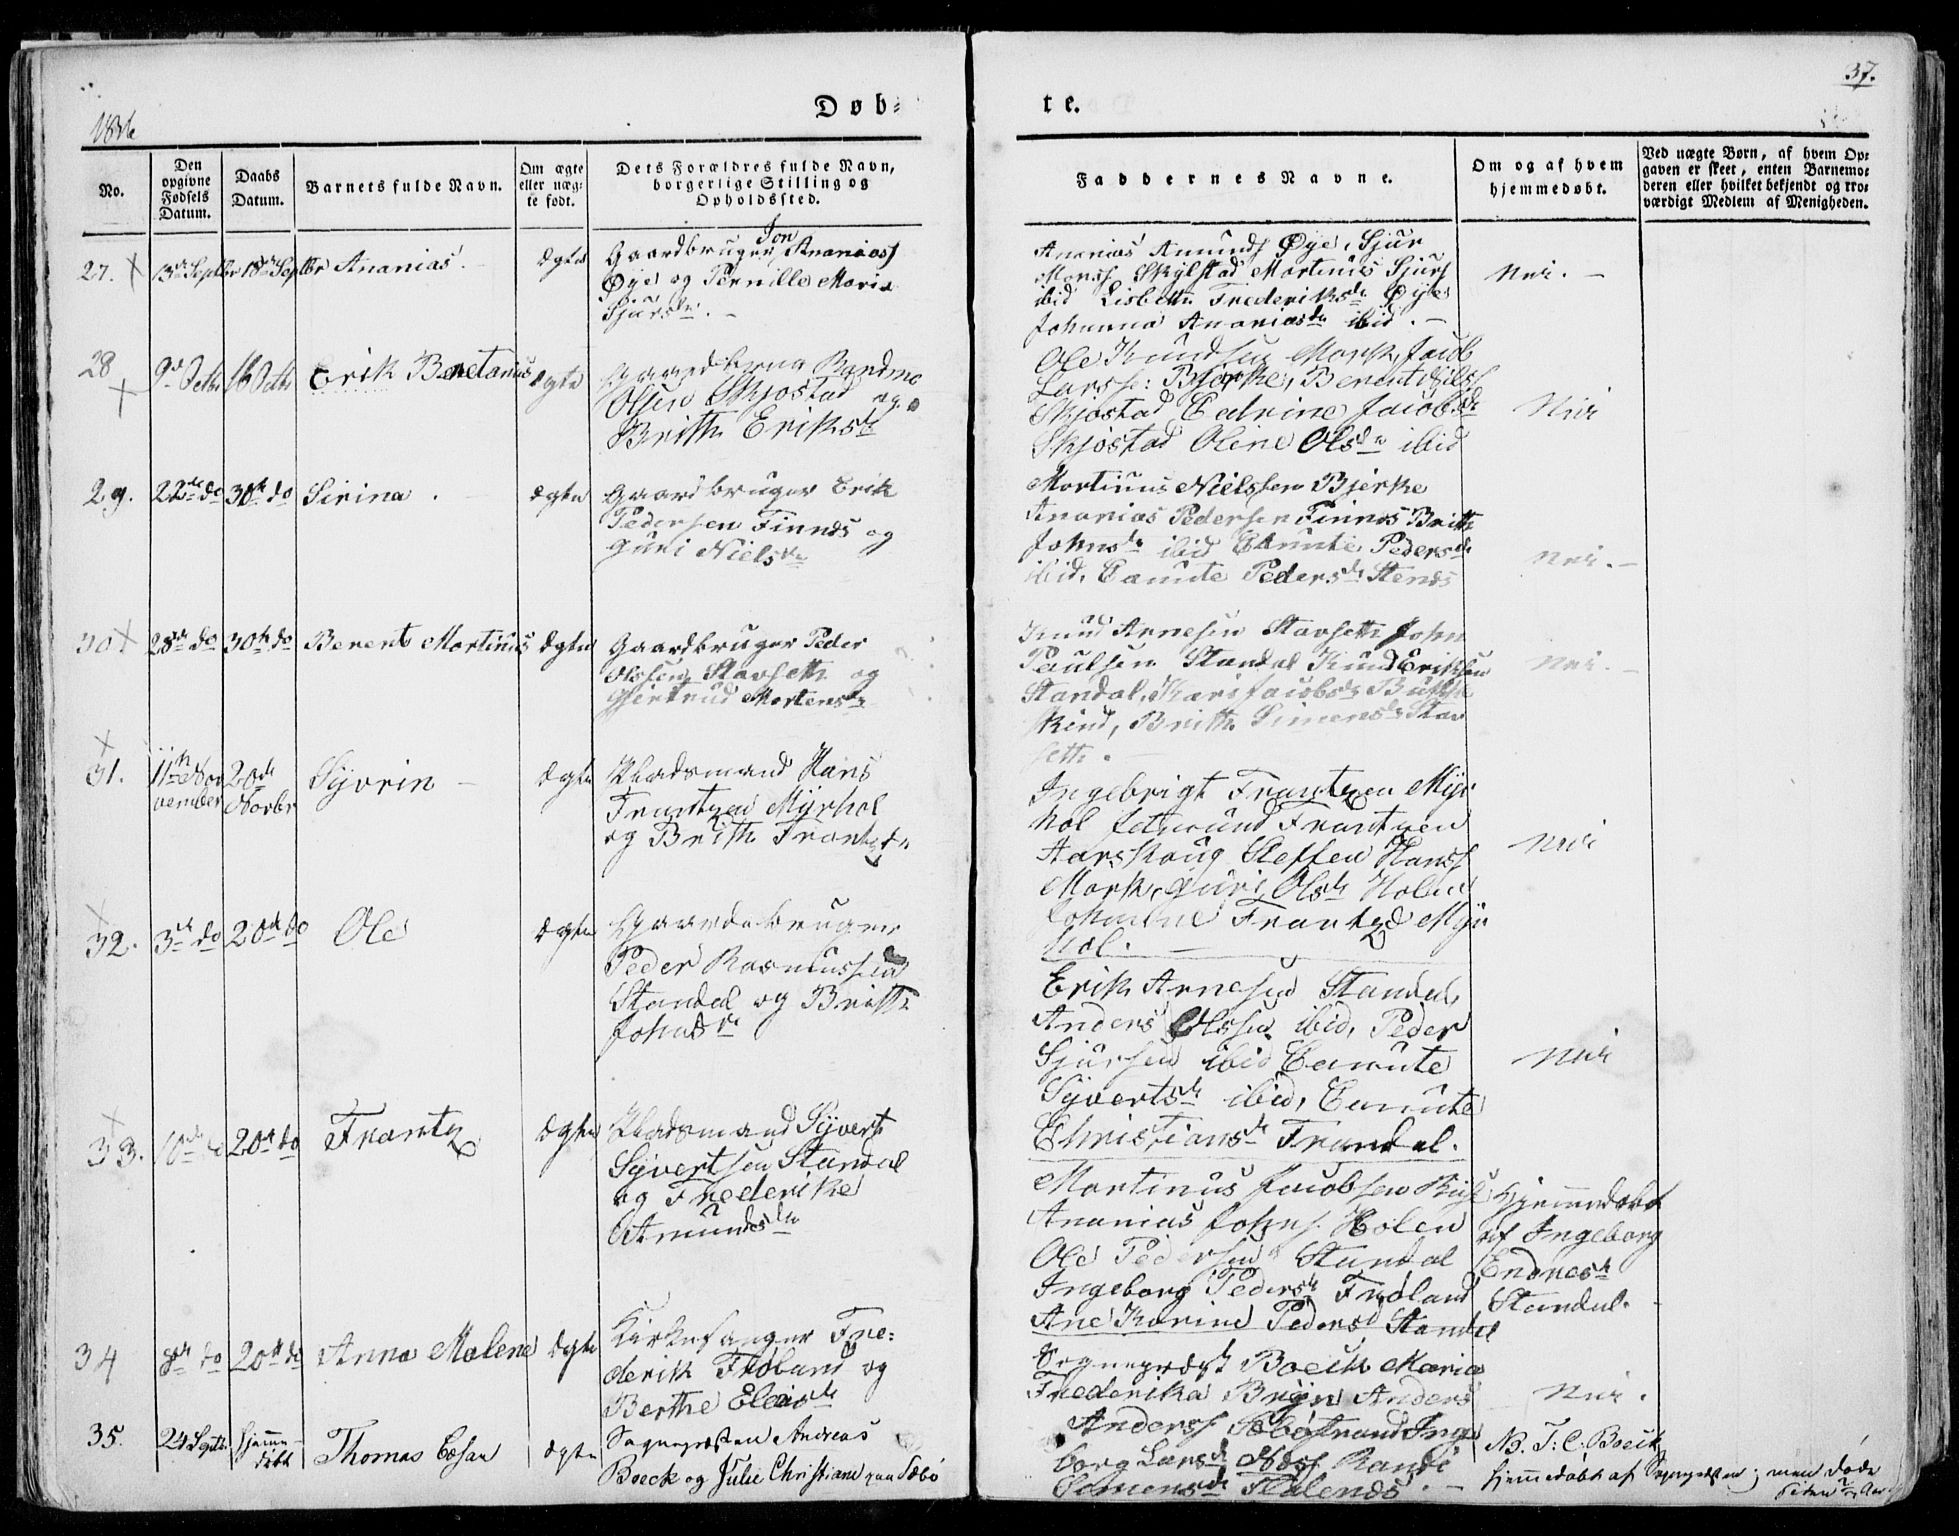 37.
1836
Døb-
te.
No.
Den opgivne Fødsels Datum.
Daabs Datum.
Barnets fulde Navn.
Om ægte eller uægte født.
Dets Forældres fulde Navn, borgerlige Stilling og Opholdssted.
Faddernes Navne.
Om og af hvem hjemmedøbt.
Ved uægte Børn, af hvem Opgaven er skeet, enten Barnemoderen eller hvilket bekjendt og troværdigt Medlem af Menigheden.
27. 13de Septbr 18de Septbr Ananias. Ægte
Gaardbruger Jon Ananiass
Øye og Pernille Maria
Sjursdr. –
Ananias Amunds Øye, Sjur
Monss Skylstad Martinus Sjurs
ibid Lisbeth Frederiksdr Øye
Johanna Ananiasdr ibid. –
Nei. –
28 9de Octbr 16 Octbr Erik Berntanus Ægte
Olsen Skjostad og
Brith Eriksdr
Ole Knudsen Mork, Jacob
Larss: Bjørke, Berent Nilss
Skjostad Jacobsdr
Skjostad Oline Olsdr ibid
Nei
29. 22de do 30te do Sirina. ægte
Gaardbruger Erik
Pedersen Finnes og
Guri Nielsdr
Martinus Nielssen Bjerke
Ananias Pedersen Finnes Brith
Johnsdr ibid Pedersdr
ibid. Pedersdr Stenes
Nei. –
30 28de do 30te do Berent Martinus Ægte
Gaardbruger Peder
Olssen Stavseth og
Gjertrud Mortensdr
Knud Arnesen Stavseth John
Paulsen Standal Knud Eriksen
Standal, Kari Jacobsdr
Brith Simensdr Stav
seth.
Nei. –
31. 11te November 20de Novbr Syvrin – Ægte
Pladsmand Hans
Frantzen Myrhol
og Brith Frantzdr
Ingebrigt Frantzen Myr
hol Frantzen
Aarskoug Steffen Hanss
Mork, Guri Olsdr Holen
Frantzd Myr
hol. –
Nei
32. 3de do 20de do Ole Ægte
Gaardebruger
Peder Rasmussen
Standal og Brith
Johnsdr
Erik Arnesen Standal,
Anders Olssen ibid, Peder
Sjursen ibid
Syvertsdr ibid,
Christiansdr Trandal.
Nei
33. 10de do 20de do Frantz Ægte
Pladsmand Syvert
Syvertsen Standal
og Frederike
Amundsdr
Martinus Jacobsen
Ananias Johns. Holen
Ole Pedersen Standal
Ingeborg Pedersdr Frøland
Ane Karine Pedersd Standal
Hjemmedøbt
af Ingeborg
Endresdr
Standal.
34 8de do 20de do Anna Malene Ægte
Kirkesanger Fre-
derik Frøland og
Berthe
Sognepræst Boeck Maria
Frederika Bryn Anders
Anderss Sæbøstrand Inge
borg Larsdr Randi
Simensdr
Nei.
35. 24 Septbr Hjemme-
døbt Thomas Cæsar ægte
Sognepræsten Andreas
Boeck og Julie Christiane paa Sæbø
NB. T: C: Boeck
hjemmedøbt af Sognepræsten; men døde